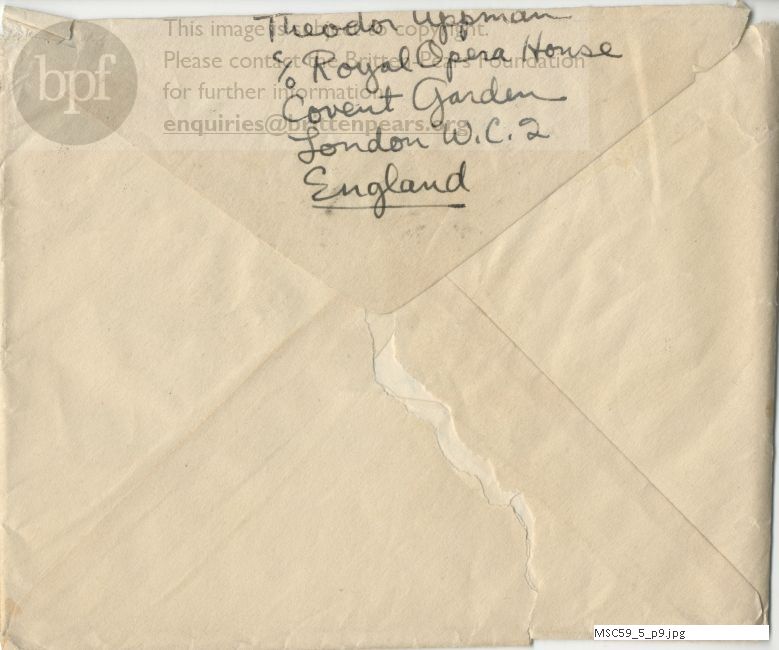 Theodor Uppman
c/o Royal Opera House
Covent Garden
London W.C.2
England
bpf
This image is subject to copyright.
Please contact the Britten-Pears Foundation
for further information
enquiries@brittenpears.org
MSC59_5_p9.jpg